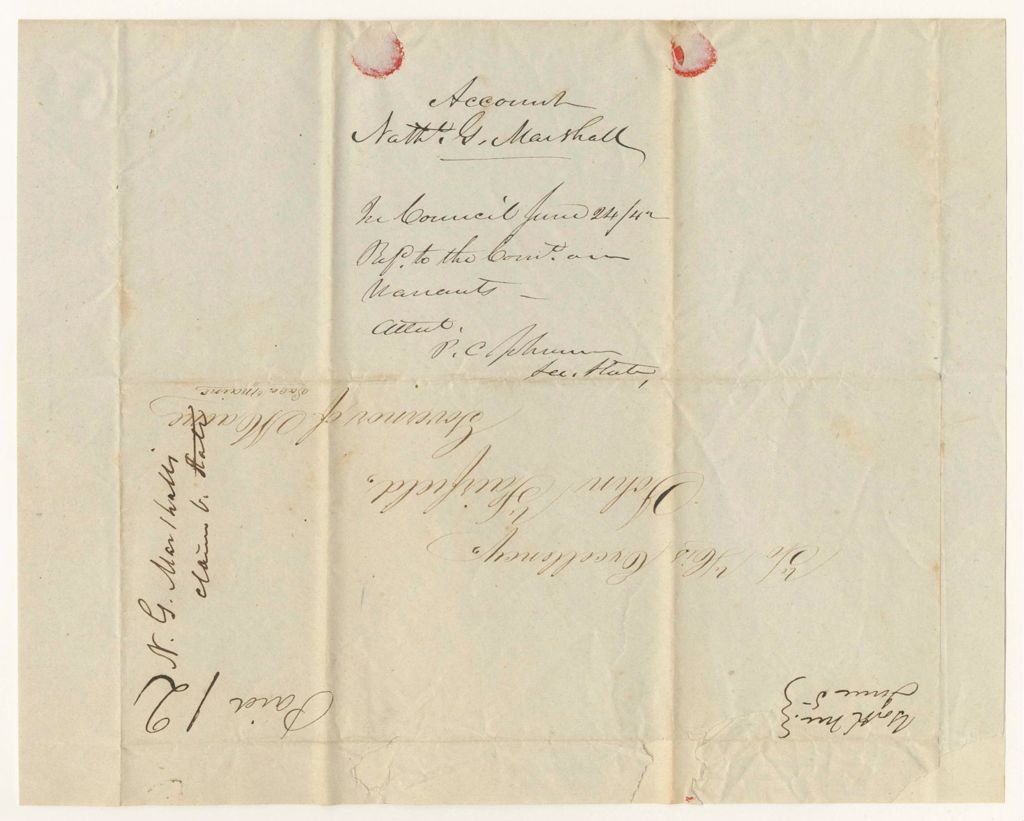 Account
Nathl. G. Marshall
In Council June 24/42
Ref. to the Comt. on
Warrants –
Attest.
P. C. Johnson
Sec. State,
N. G. Marshall's
claim v. State
To His Excellency,
John Fairfield,
Governor of Maine
Saco, Maine
Paid 12
York Me.
June 5